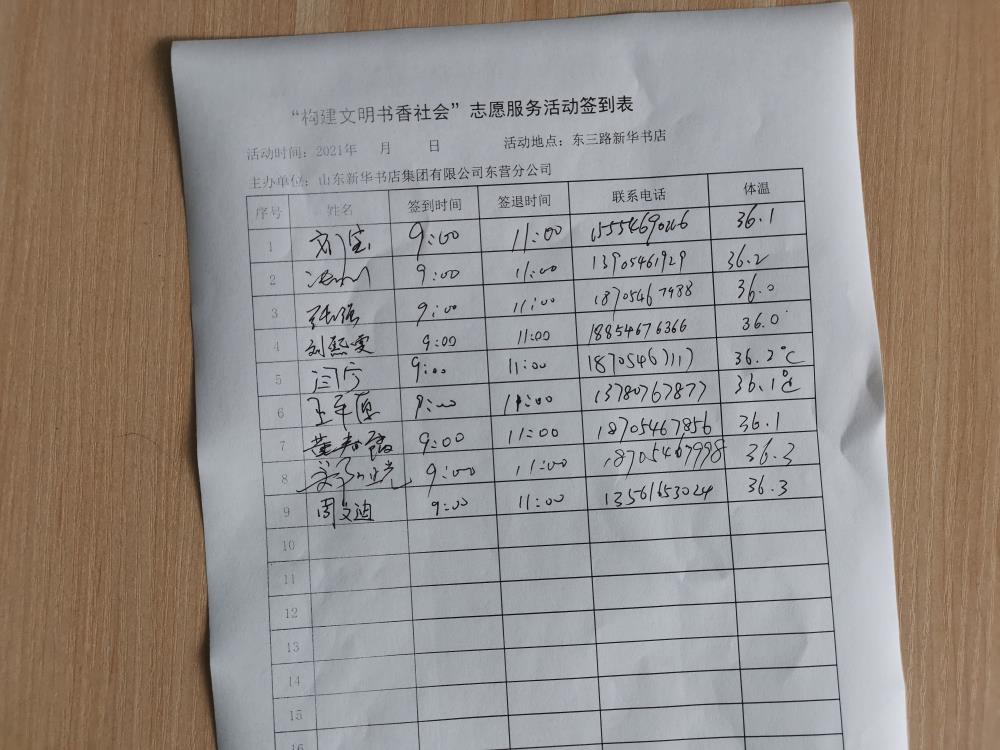 “构建文明书香社会”志愿服务活动签到表
活动时间：2021年 月 日 活动地点：东三路新华书店
主办单位：山东新华书店集团有限公司东营分公司
序号 姓名 签到时间 签退时间 联系电话 体温
1 9:00 11:00 36.1
2 9:00 11:00 13905461929 36.2
3 张强 9:00 11:00 18705467988 36.0
4 刘熙雯 9:00 11:00 18854676366 36.0
5 9:00 11:00 18705467117 36.2℃
6 9:00 11:00 13780767877 36.1℃
7 9:00 11:00 18705467856 36.1
8 9:00 11:00 18705467998 36.3
9 周文迪 9:00 11:00 13561653024 36.3
10
11
12
13
14
15
16